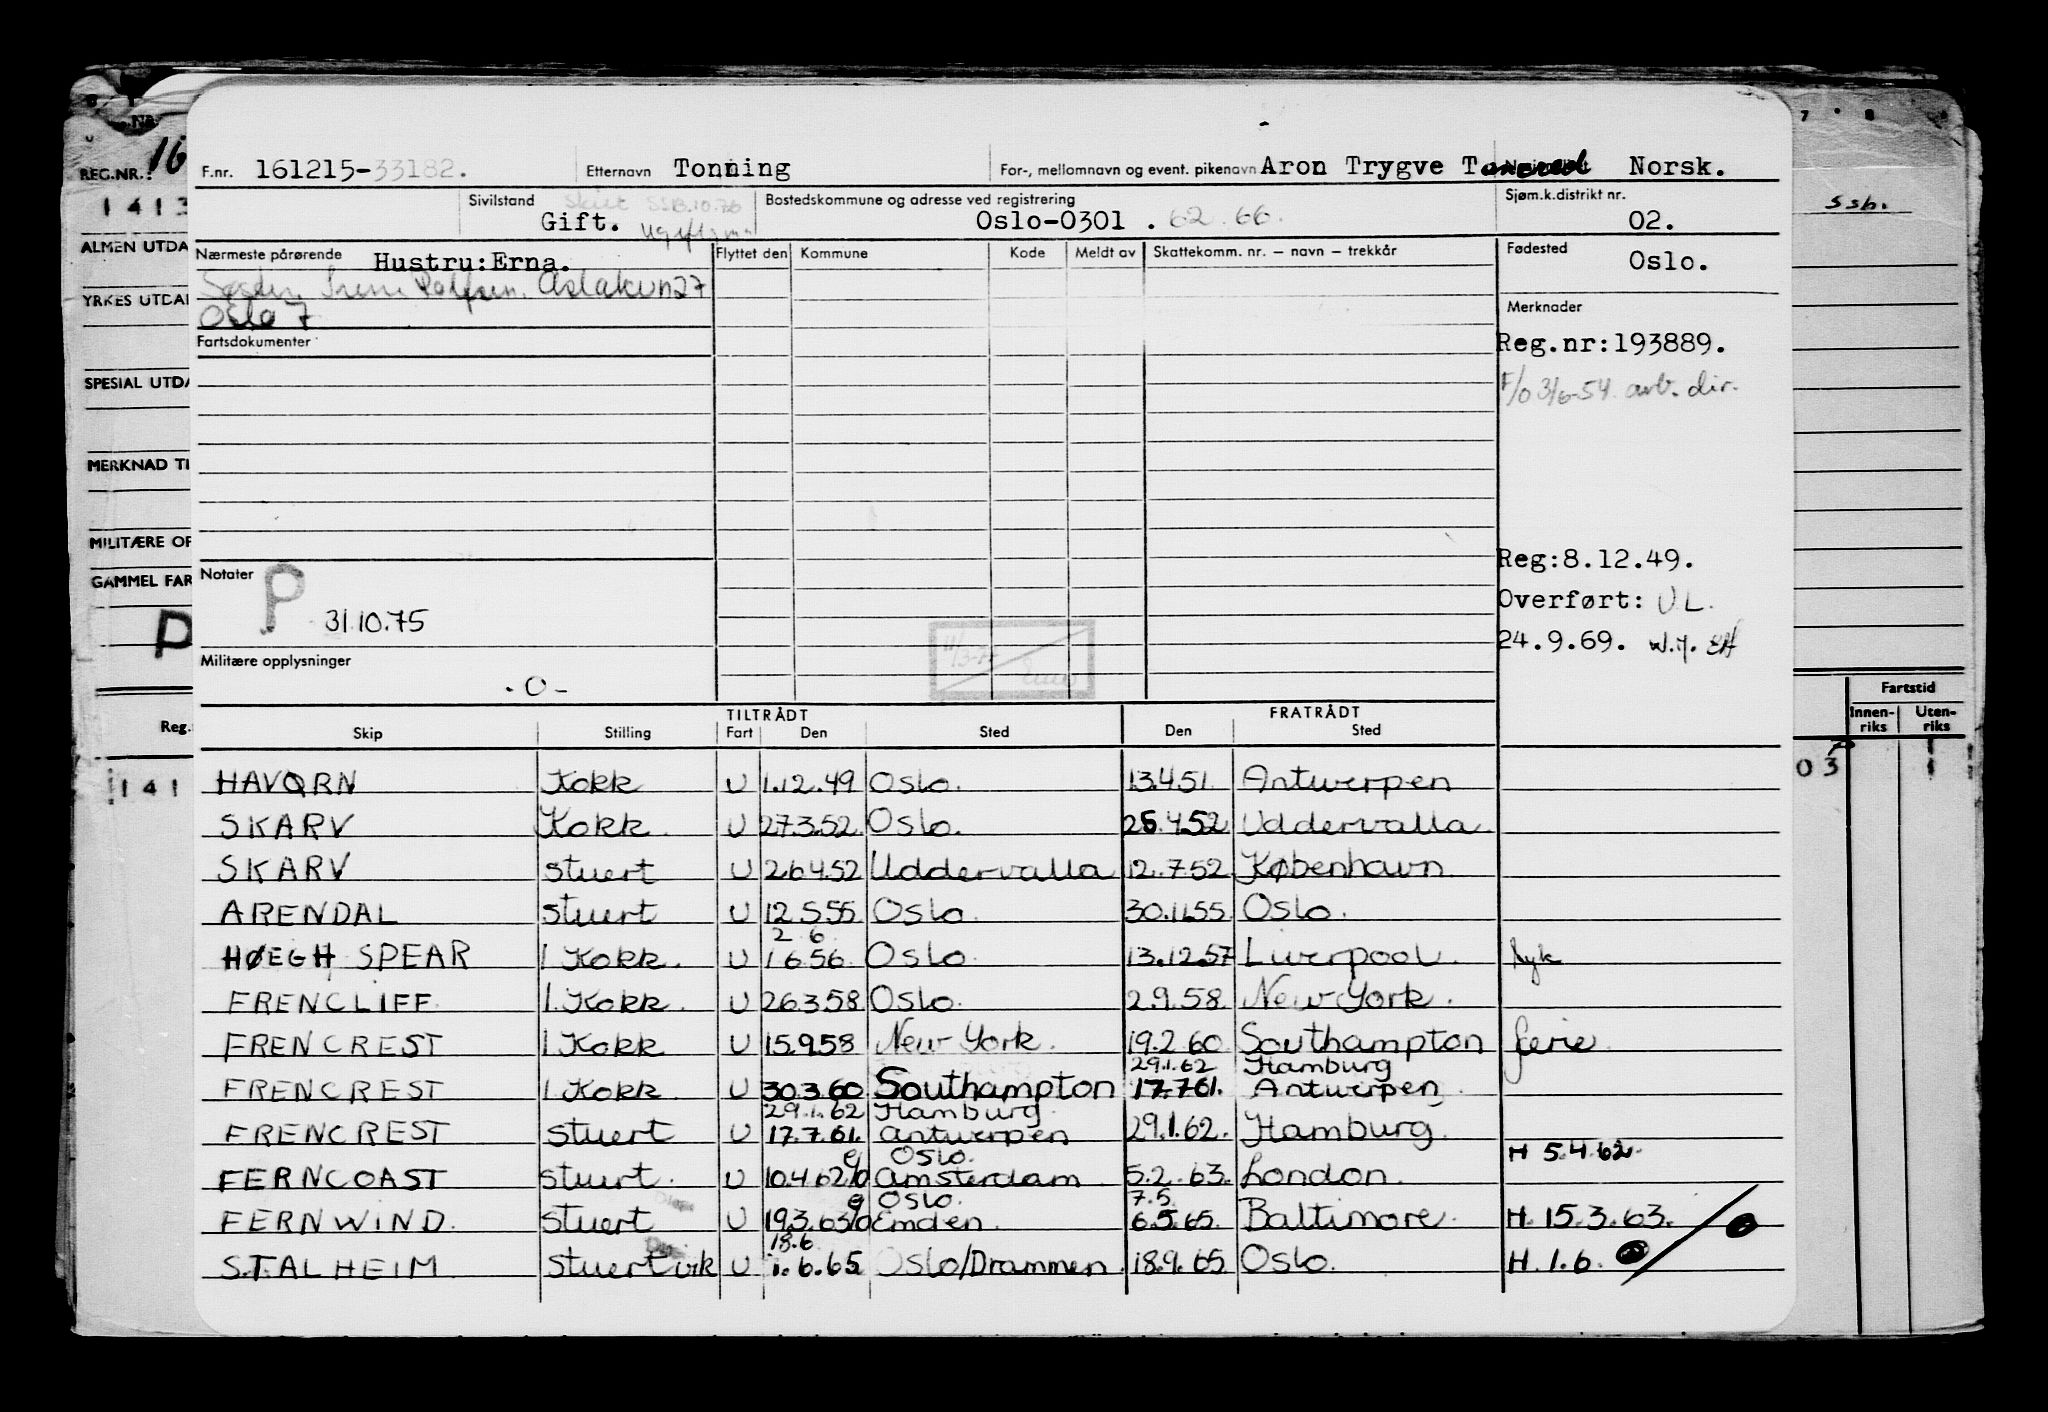 F.nr. 161215-33182. Etternavn Tonning For-, mellomnavn og event. pikenavn Aron Trygve Norsk.
REG.NR.: 16
1 4 1 3
Sivilstand Gift. Bostedskommune og adresse ved registrering Oslo-0301 . 62.66. Sjøm.k.distrikt nr. 02.
Ssb.
ALMEN UTDA
Nærmeste pårørende Hustru:Erna. Flyttet den Kommune Kode Meldt av Skattekomm. nr. — navn — trekkår Fødested Oslo.
YRKES UTDA
Oslo 7
Merknader
Fartsdokumenter
Reg.nr:193889.
SPESIAL UTDA
F/o 3/6-54 arb. dir.
MERKNAD TI
MILITÆRE OP
Reg:8.12.49.
GAMMEL FAR
Notater P 31.10.75
Overført: U.L.
P
24.9.69.
Militære opplysninger
-0-
Fartstid
TILTRÅDT FRATRÅDT
Innen-riks Uten-riks
Reg.
Skip Stilling Fart Den Sted Den Sted
1 4 1
HAVØRN Kokk U 1.12.49 Oslo. 13.4.51. Antwerpen
03
SKARV Kokk. U 27.3.52. Oslo. 25.4.52 Uddervalla
SKARV stuert U 26.4.52 Uddervalla 12.7.52 København
ARENDAL stuert U 12.5.55 Oslo. 30.11.55 Oslo.
2 6
HØEGH SPEAR 1 Kokk. U 1 6 56 Oslo 13.12.57 Liverpool. syk
FRENCLIFF 1. Kokk. U 26.3.58 Oslo. 2.9.58. New York.
FRENCREST 1 Kokk U 15.9.58 New York. 19.2.60. Southampton ferie
29.1.62 Hamburg
FRENCREST 1 Kokk. U 30.3.60 Southampton 17.7.61. Antwerpen.
29.1.62 Hamburg.
FRENCREST stuert U 17.7.61. Antwerpen 29.1.62. Hamburg.
Oslo. H 5.4.62.
FERNCOAST stuert. U 10.4.62 Amsterdam 5.2.63. London.
Oslo. 7.5
FERNWIND. stuert U 19.3.63 Emden. 6.5.65. Baltimore. H. 15.3.63.
18.6
STALHEIM stuert vik U 1.6.65 Oslo/Drammen. 18.9.65 Oslo. H. 1.6.